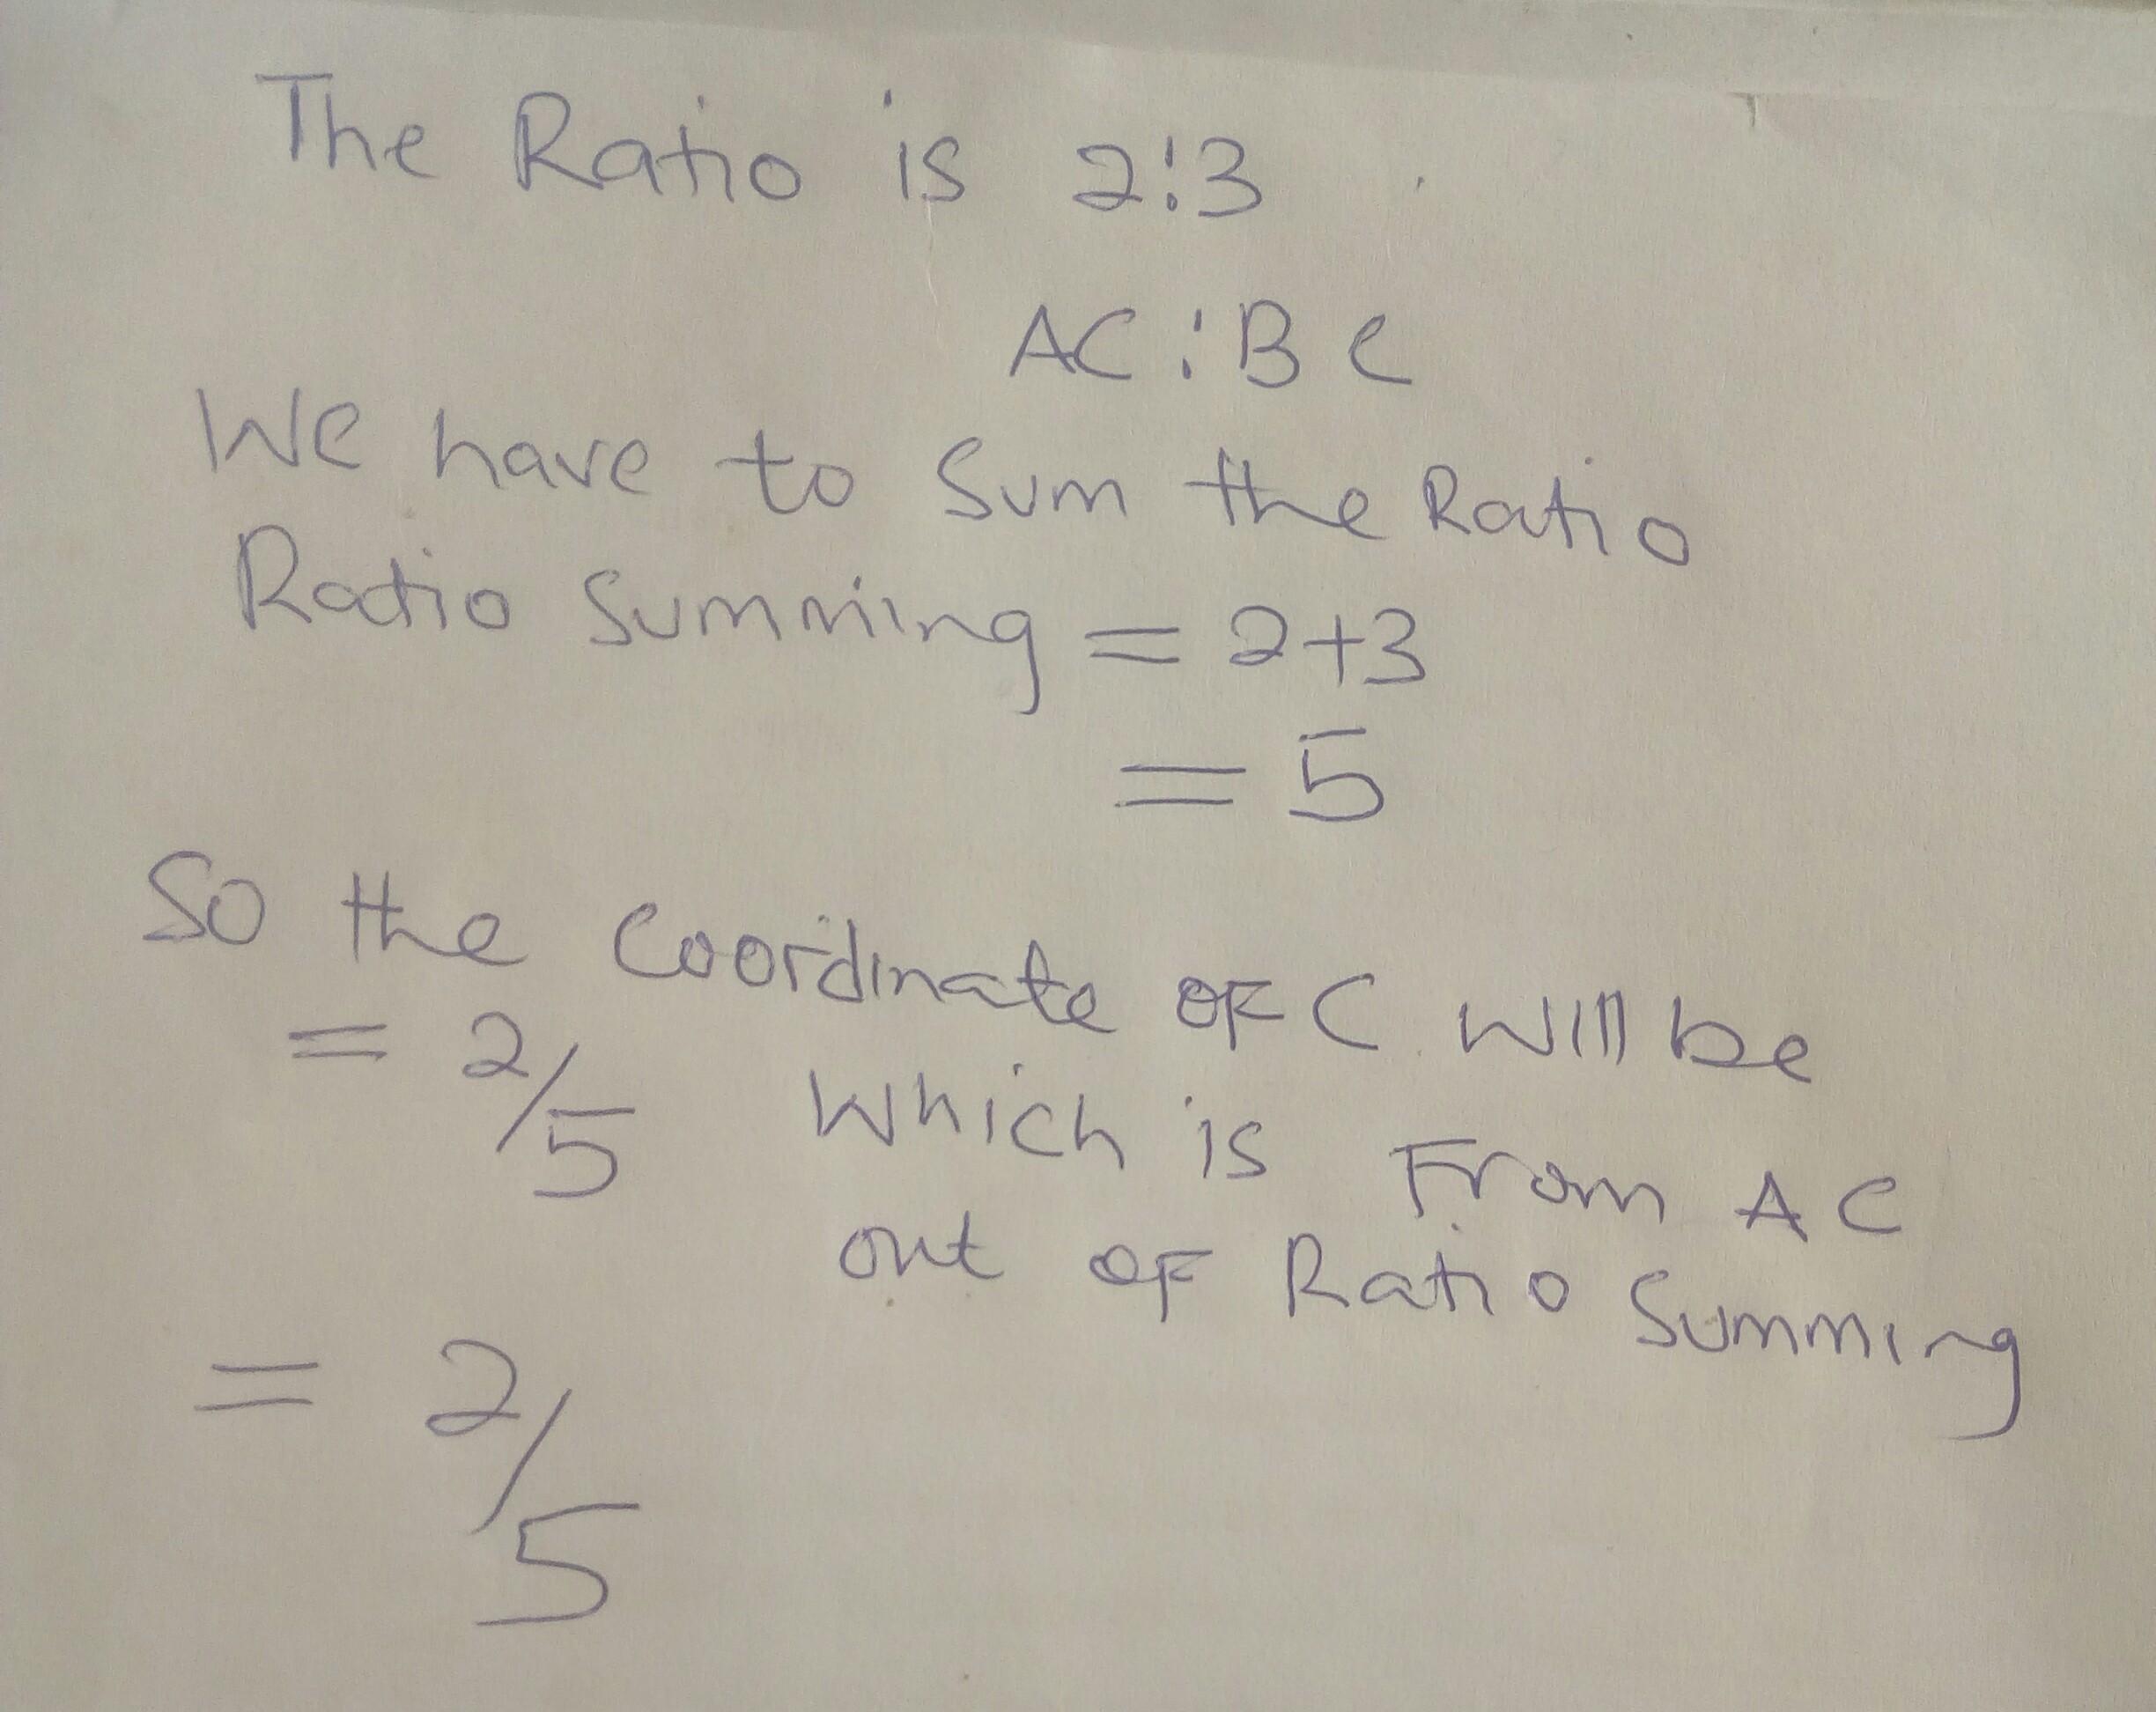 The Ratio is 2:3
AC:BC
We have to Sum the Ratio
Ratio Summing = 2+3
= 5
So the Coordinate OF C will be
= 2/5 which is From AC
out OF Ratio Summing
= 2/5